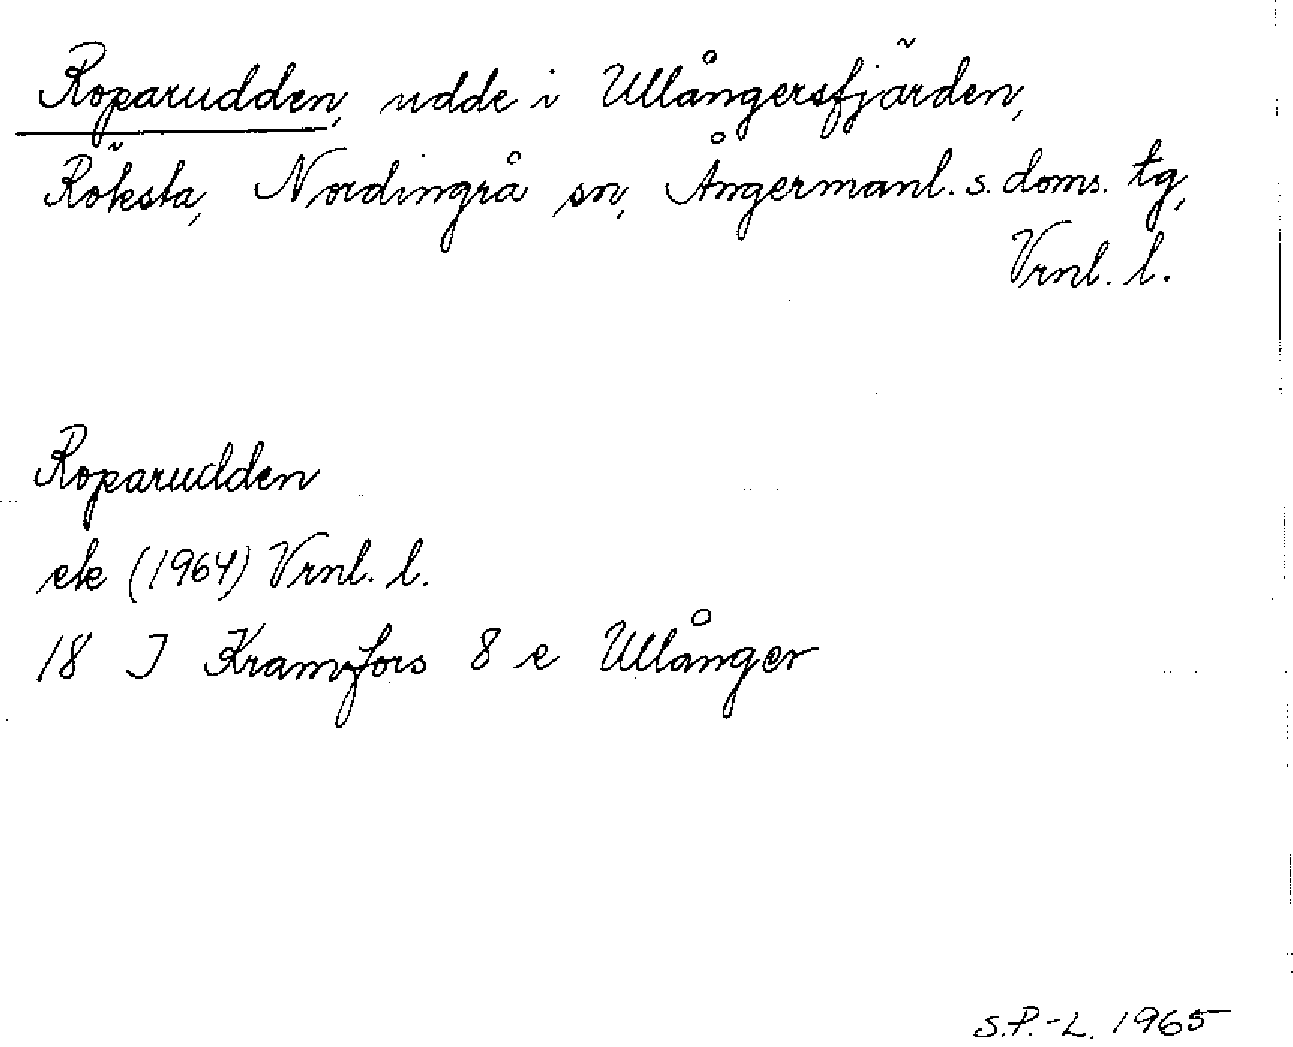 Roparudden, udde i Ullångersfjärden,
Röksta, Nordingrå sn, Ångermanl. s. doms. tg,
Vrnl. l.
Roparudden
ek (1964) Vrnl. l.
18 J Kramfors 8 e Ullånger
S.P.-L. 1965